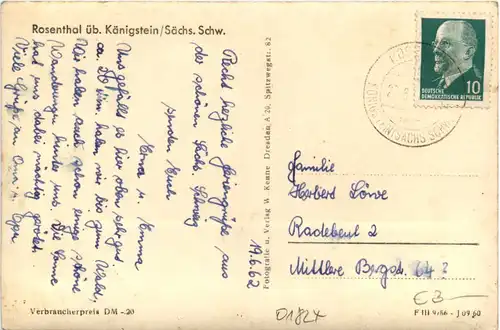 Rosenthal üb. Königstein/Sächs. Schw.
19.6.62
Recht herzliche Feriengrüße aus
der schönen Sächs. Schweiz
senden Euch
Erna u. Emma
Uns gefällt es hier oben sehr gut
ca. 20 Min. haben wir bis zum Wald.
Wir haben auch schon einige schöne
Wanderungen hinter uns. Die Sonne
hat uns dabei mächtig gebräunt.
Viele Grüße an Oma u. Opa
Verbraucherpreis DM -20
Fotografie u. Verlag W. Kenne Dresden A 20, Spitzwegstr. 82
DEUTSCHE
DEMOKRATISCHE REPUBLIK
10
Familie
Herbert Löwe
Radebeul 2
Mittlere Bergstr. 64
01824
F III 9/86 - J 09 60